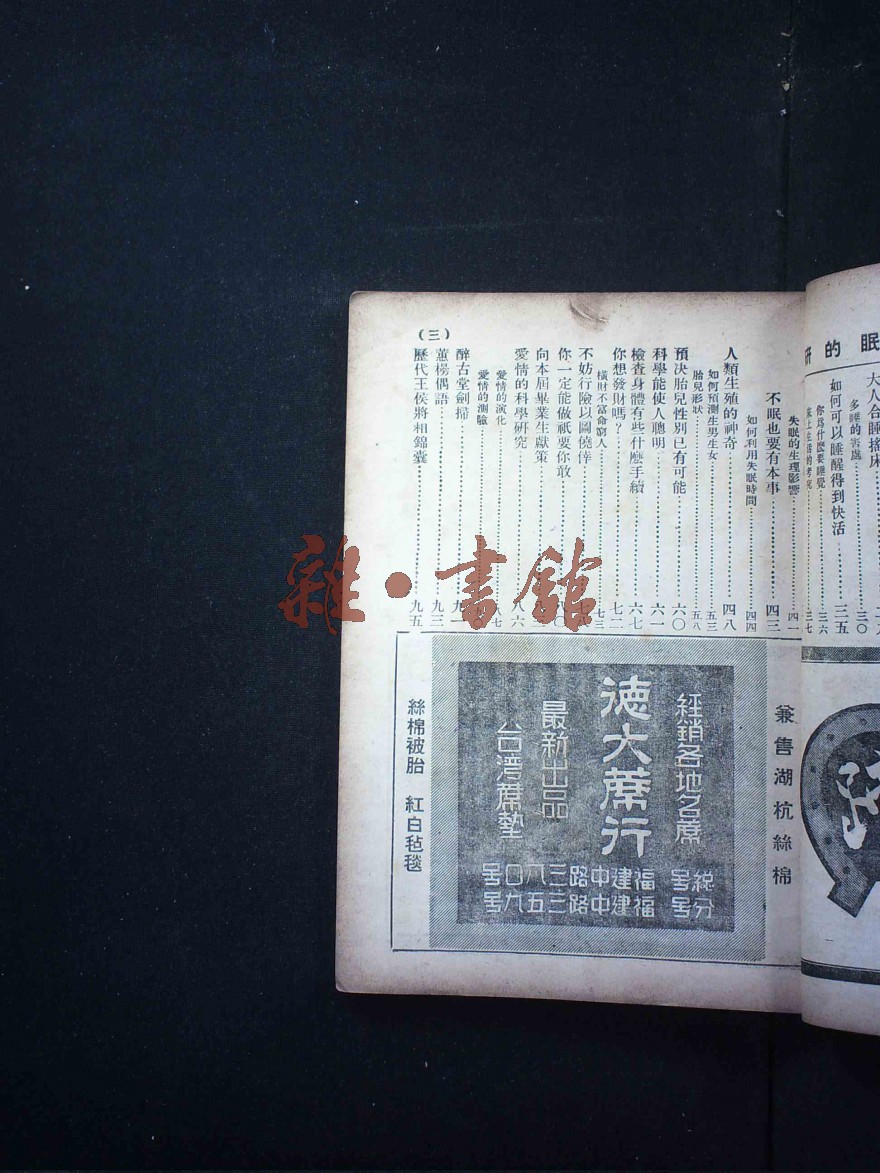 眠的研
大人合睡搖床
多睡的害處……三〇
如何可以睡醒得到快活……三五
你爲什麼要睡覺……三六
三七
失眠的生理影響……四一
不眠也要有本事……四三
如何利用失眠時間……四四
人類生殖的神奇……四八
如何預測生男生女……五三
胎兒形狀……五八
預決胎兒性別已有可能……六〇
科學能使人聰明……六一
檢查身體有些什麼手續……六七
你想發財嗎?……七二
橫財不富命窮人
不妨行險以圖僥倖
你一定能做祇要你敢
向本屆畢業生獻策
愛情的科學研究……八六
愛情的演化
愛情的測驗
醉古堂劍掃……九一
蕙櫋偶語……九三
歷代王侯將相錦囊……九五
(三)
兼售湖杭絲棉
經銷各地名席
德大蓆行
最新出品
台灣蓆墊
總号 福建中路三八〇号
分号 福建中路三五九号
絲棉被胎 紅白毡毯
雜·書館